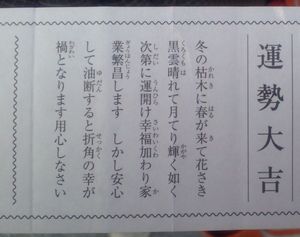 運勢大吉
冬の枯木に春が来て花さき
黒雲晴れて月てり輝く如く
次第に運開け幸福加わり家
業繁昌します　しかし安心
して油断すると折角の幸が
禍となります用心しなさい